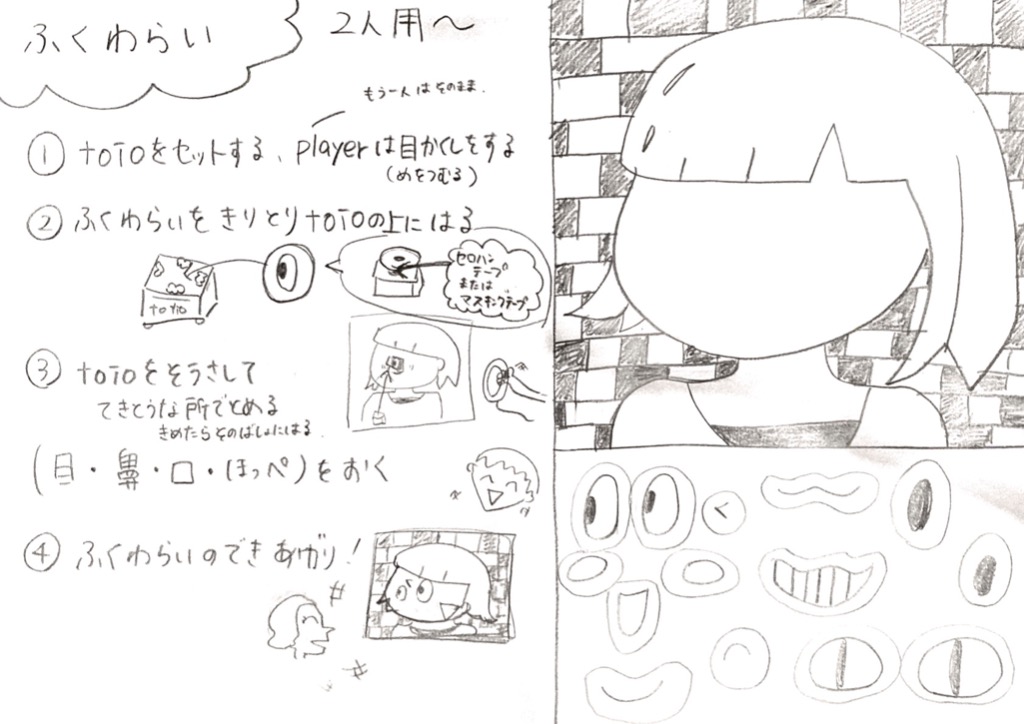 ふくわらい
2人用〜
もう一人はそのまま.
① toioをセットする、playerは目かくしをする
(めをつむる)
② ふくわらいをきりとりtoioの上にはる
セロハン
テープ
または
マスキングテープ
toio
③ toioをそうさして
てきとうな所でとめる
きめたらそのばしょにはる.
(目・鼻・口・ほっぺ)をおく
④ ふくわらいのできあがり!